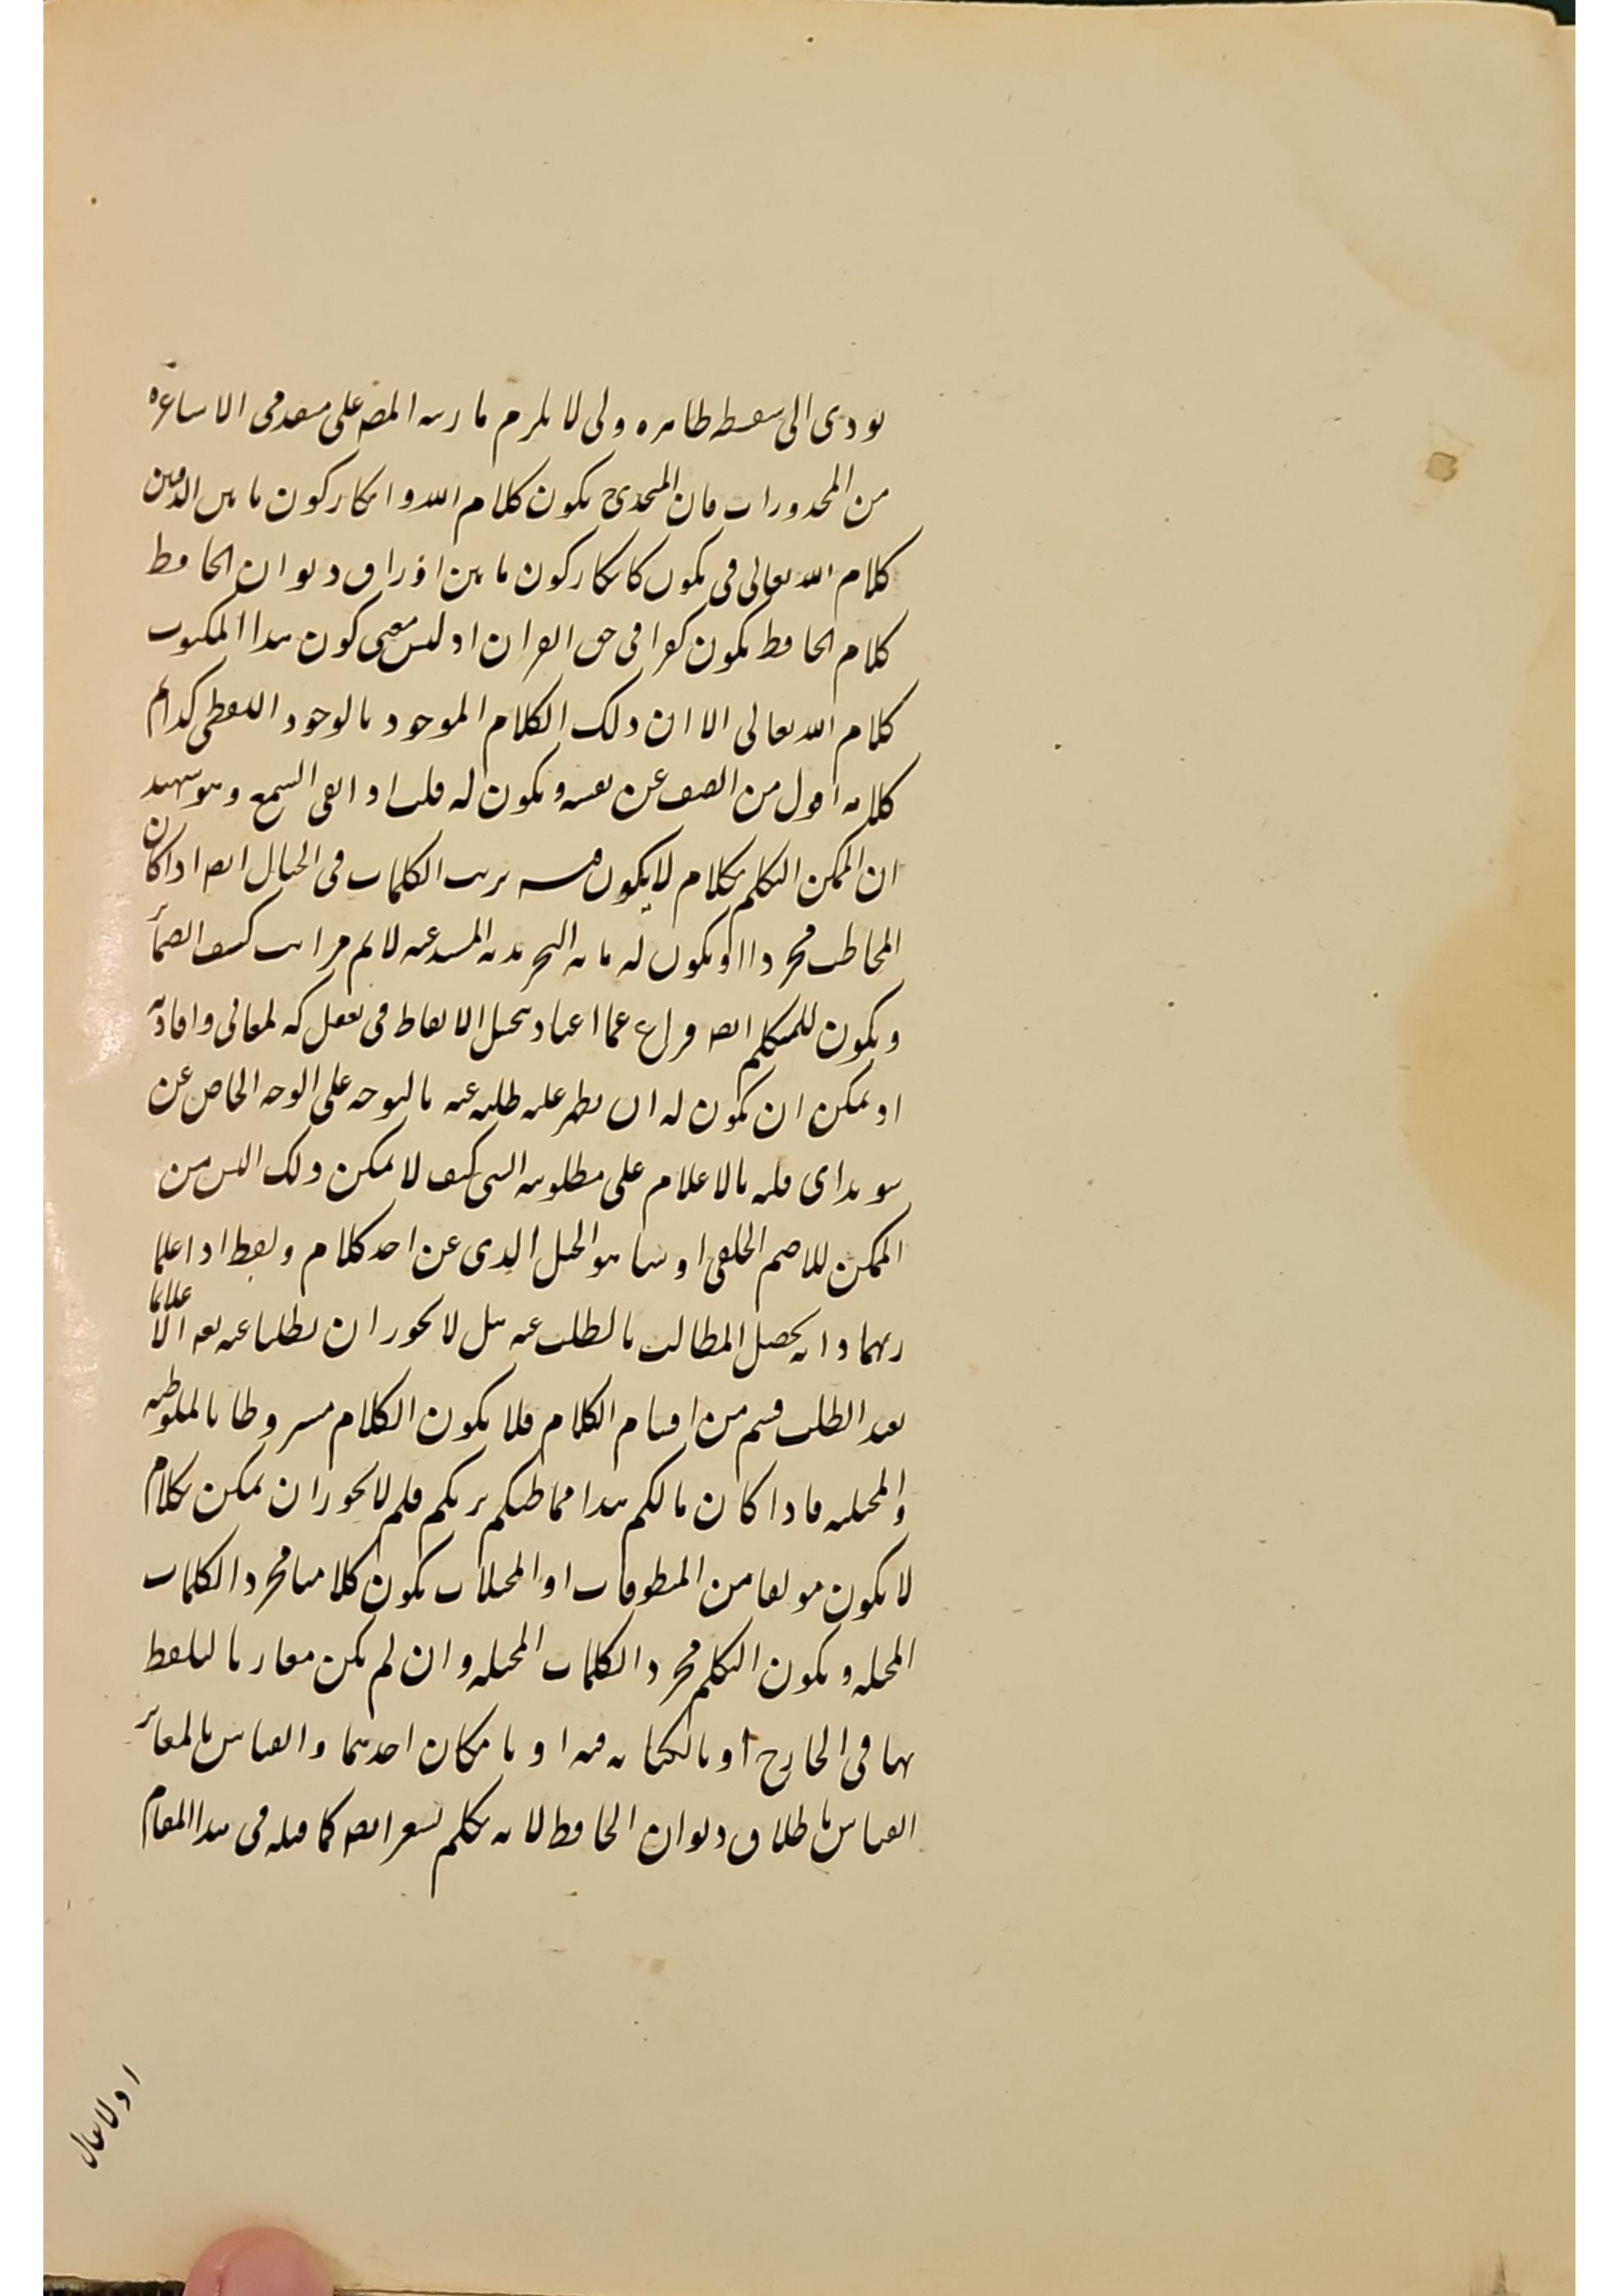 يودى الى سفسطه ظاهره وفى لا يلزم ما رتبه المص على متقدمى الاشاعره
من المحذورات فان المتحدى يكون كلام الله وانكار كون ما بين الدفتين
كلام الله تعالى فى يكون كانكار كون ما بين اوراق ديوان الحافظ
كلام الحافظ يكون كفرا فى حق القران اذ ليس معنى كون هذا المكتوب
كلام الله تعالى الا ان ذلك الكلام الموجود بالوجود اللفظى كذا
كلامه اقول من انصف عن نفسه ويكون له قلب او القى السمع وهو شهيد
ان الممكن التكلم بكلام لا يكون فيه ترتب الكلمات فى الخيال ايضا اذا كان
المخاطب مجردا او يكون له مانه التجرد كشف الضمائر
ويكون للمتكلم ايضا فراغ عما اعتاد تخيل الالفاظ فى تعقل المعانى وافادته
او يمكن ان يكون له ان يظهر عليه طلبه عنه بالتوجه على الوجه الخاص عن
سويداى قلبه بالاعلام على مطلوبه التى كيف لا يمكن ذلك اليس من
الممكن للاصم الخلقى الذى عن احد كلام ولفظ اذا علما
ربهما وانه يحصل المطالب بالطلب عنه هل لا يجوز ان يطلبا عنه بعد الا علاما
بعد الطلب قسم من اقسام الكلام فلا يكون الكلام مشروطا بالملفوظيه
والمخيليه فاذا كان مالكم هذا مخاطبكم بربكم فلم لا يجوز ان يمكن بكلام
لا يكون مولفا من المنطوقات او المخيلات يكون كلاما مجرد الكلمات
المخيله ويكون التكلم مجرد الكلمات المخيله وان لم يكن مقارنا للتلفظ
بها فى الخارج او بالكتابه فيه او بامكان احدهما والقياس بالمغاير
القياس باطلاق ديوان الحافظ لانه تكلم بشعر ايضا كما قبله فى هذا المقام
او لا يقال